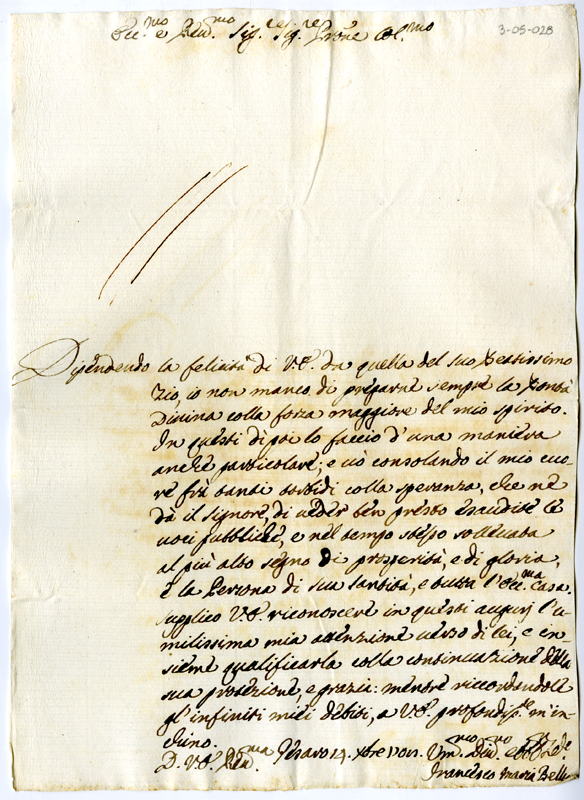 Ecc.mo e Reu.mo Sig.re Sig.re Prone Col.mo
3-05-028
Dipendendo la felicità di V.E. da quella del suo Beatissimo
Zio, io non manco di preparare sempre la Bontà
Diuina colla forza maggiore del mio spirito.
In questi dì poi lo faccio d'una maniera
anche particolare; e uò consolando il mio cuo-
re frà tanti torbidi colla speranza, che ne
dà il Signore, di ueder ben presto esaudite le
uoci pubbliche, e nel tempo stesso solleuata
al più alto segno di prosperità, e di gloria,
e la Persona di sua Santità, e tutta l'Ecc.ma Casa.
supplico V.E. riconoscere in questi augurj l'u-
milissima mia attenzione uerso di lei, e in-
sieme qualificarla colla continuazione della
sua protezione, e grazia: mentre ricordandole
gl'infiniti miei debiti, a V.E. profondis.te m'in-
chino.
D. V.E. Reu.ma Pesaro 14 Xbre
Um.mo Deu.mo
Francesco Maria Belli